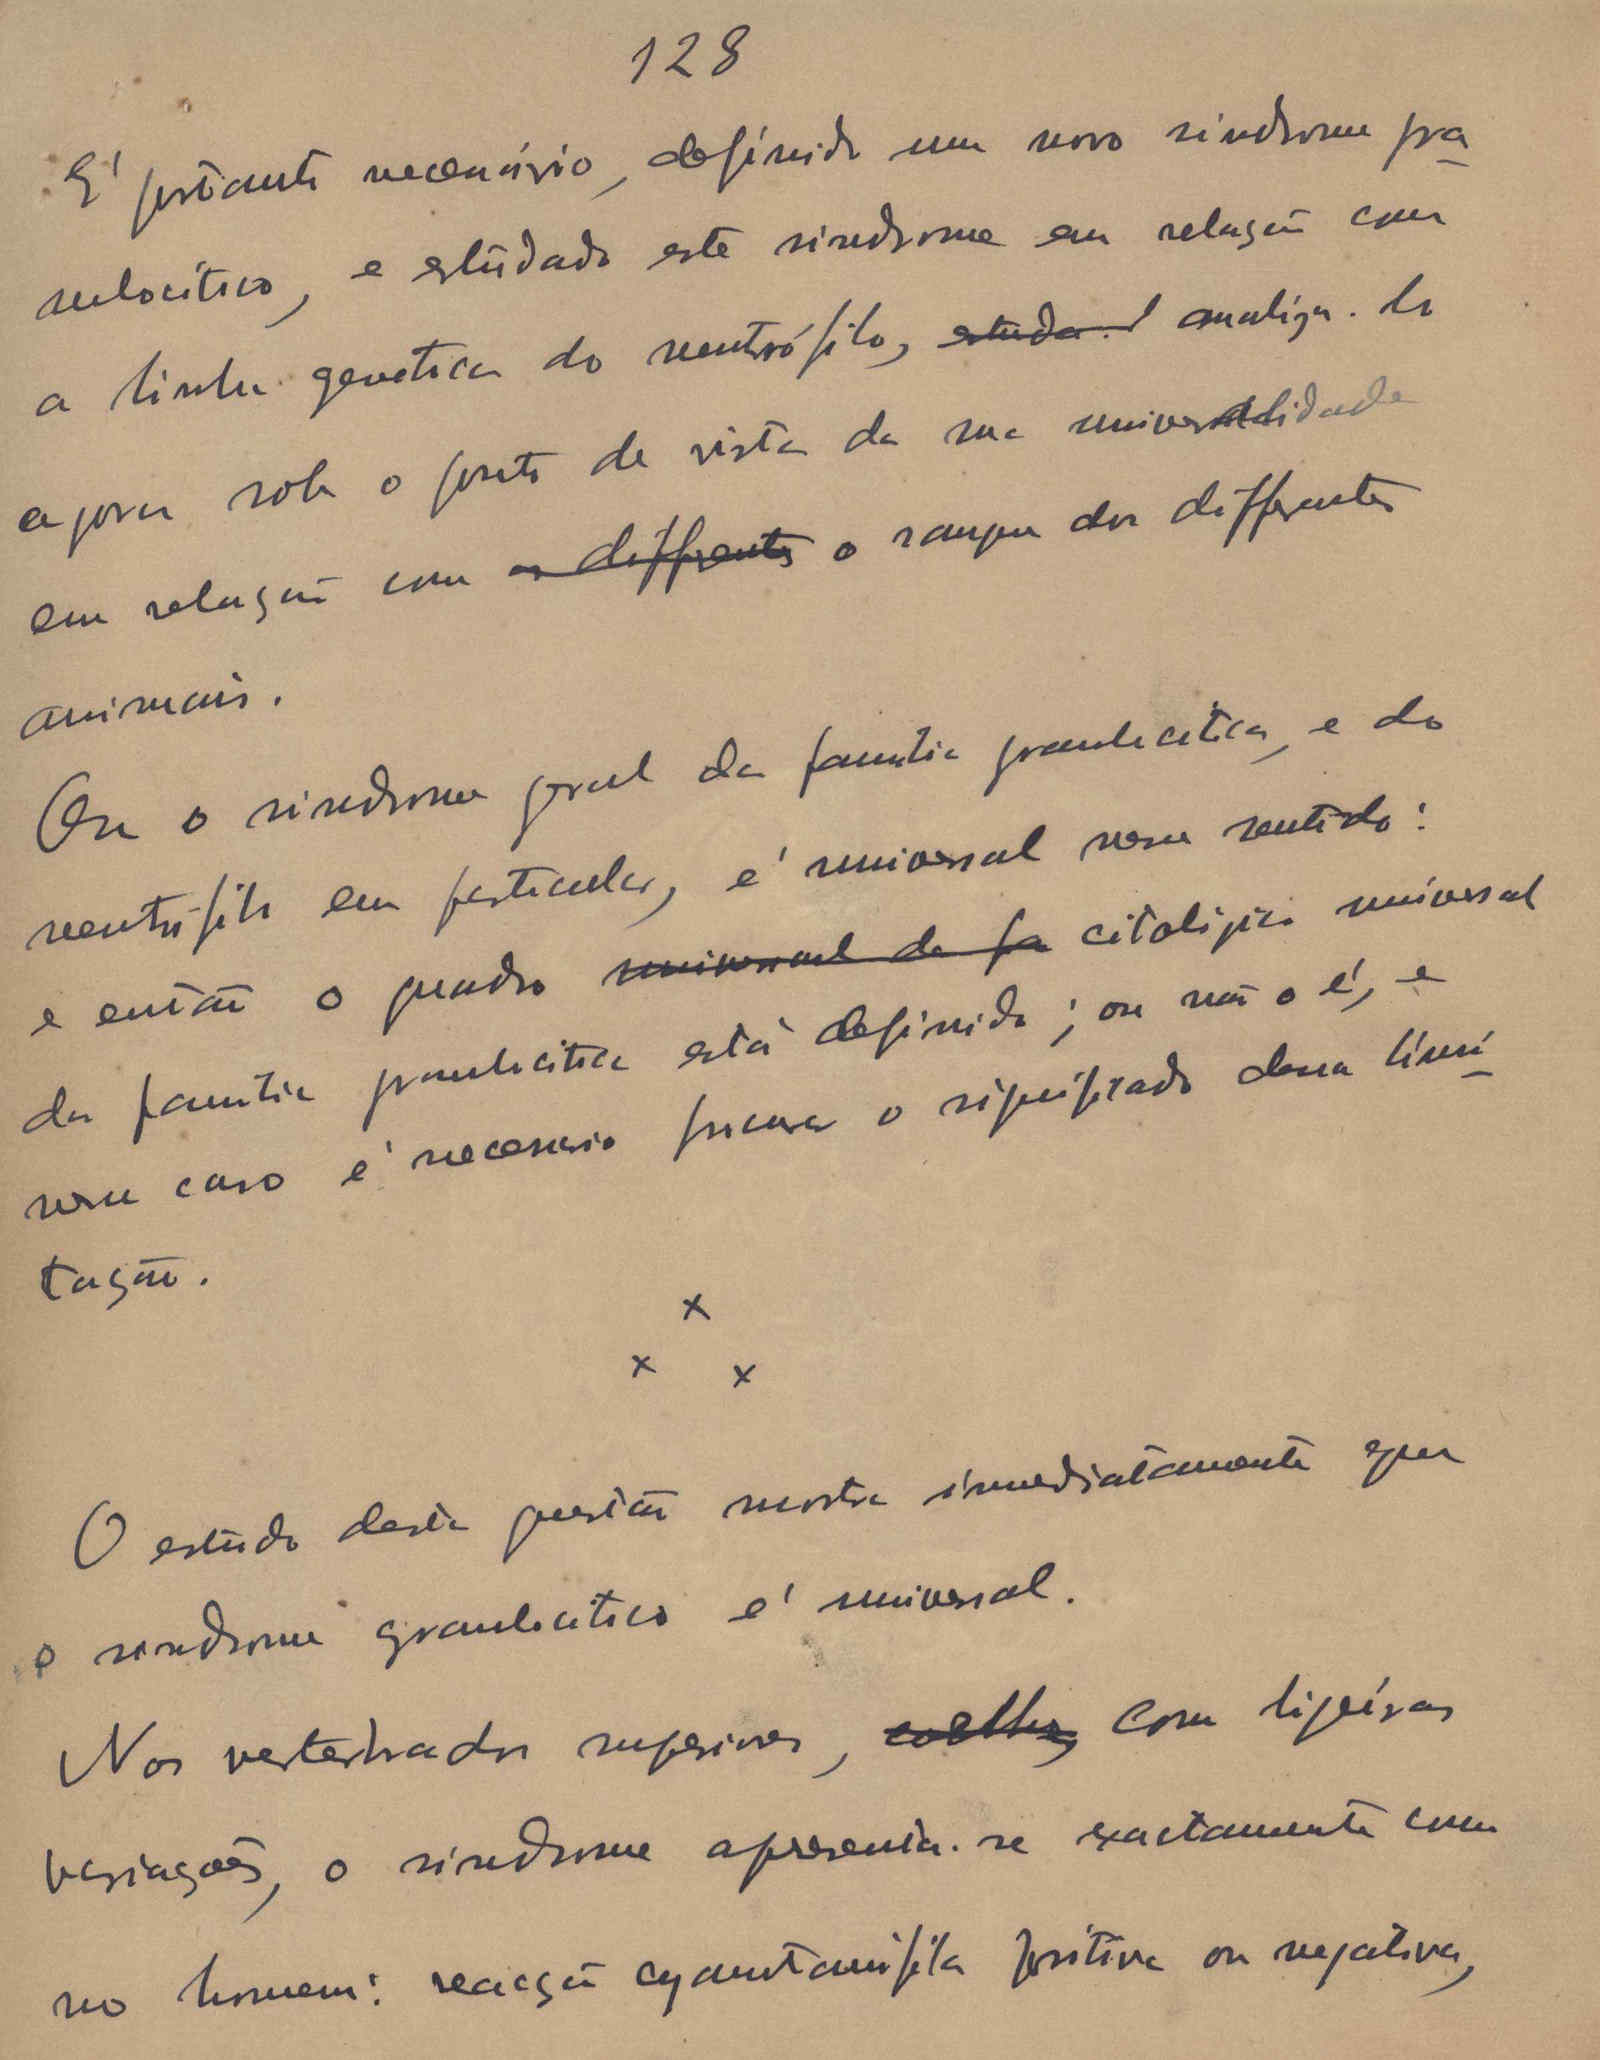 128
E' portanto necessário, definido um novo sindrome gra-
nulocítico, e estudado este sindrome em relação com
a linha genetica do neutrófilo, estuda-l analiza-lo
agora sob o ponto de vista da sua universalidade
em relação com os differentes o sangue dos differentes
animais.
Ou o sindrome geral da familia granulocitica, e do
neutrófilo em particular, é universal nesse sentido:
e então o quadro universal da fa citológico universal
da familia granulocitica está definido; ou não o é, e
nesse caso é necessario procurar o significado dessa limi-
tação.
x
x x
O estudo desta questão mostra immediatamente que
o sindrome granulocitico é universal.
Nos vertebrados superiores, coelho, com ligeiras
variações, o sindrome apresenta-se exactamente como
no homem: reacção cyanotanófila positiva ou negativa,